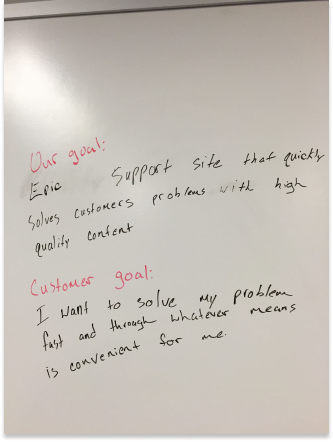 Our goal:
Epic Support site that quickly
solves customers problems with high
quality content
Customer goal:
I want to solve my problem
fast and through whatever means
is convenient for me.